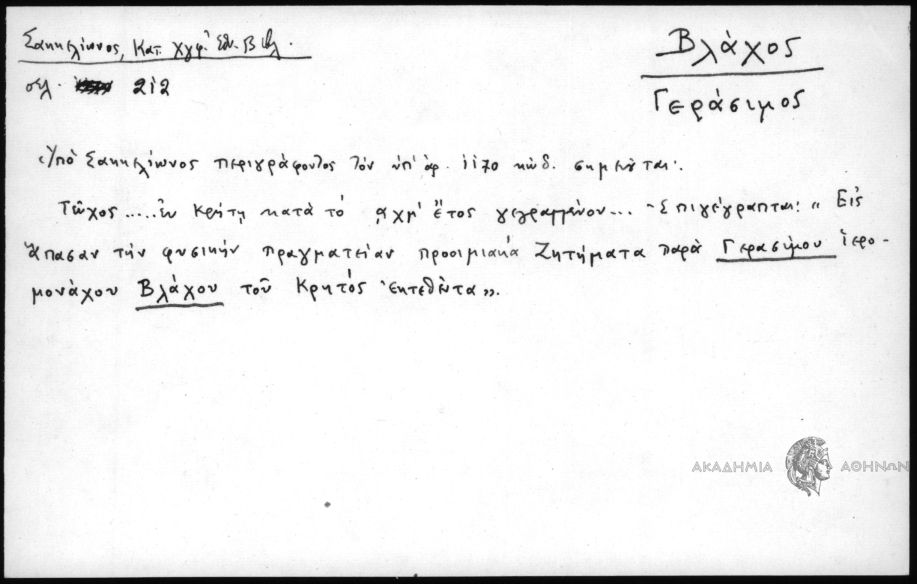 Σακκελίωνος, Κατ. χγφ. Ἐθν. Βιβλ.
Βλάχος
σελ. 212
Γεράσιμος
Ὑπὸ Σακκελίωνος περιγράφοντος τὸν ὑπ' ἀρ. 1170 κώδ. σημειοῦται:
Τεῦχος ..... ἐν Κρήτῃ κατὰ τὸ ͵αχμ' ἔτος γεγραμμένον... Ἐπιγέγραπται: "Εἰς
ἅπασαν τὴν φυσικὴν πραγματείαν προοιμιακὰ Ζητήματα παρὰ Γερασίμου ἱερο-
μονάχου Βλάχου τοῦ Κρητὸς ἐκτεθέντα".
ΑΚΑΔΗΜΙΑ ΑΘΗΝΩΝ